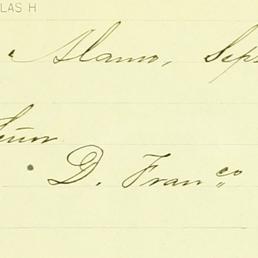 LAS H
Alamo, Sep
D. Fran.co